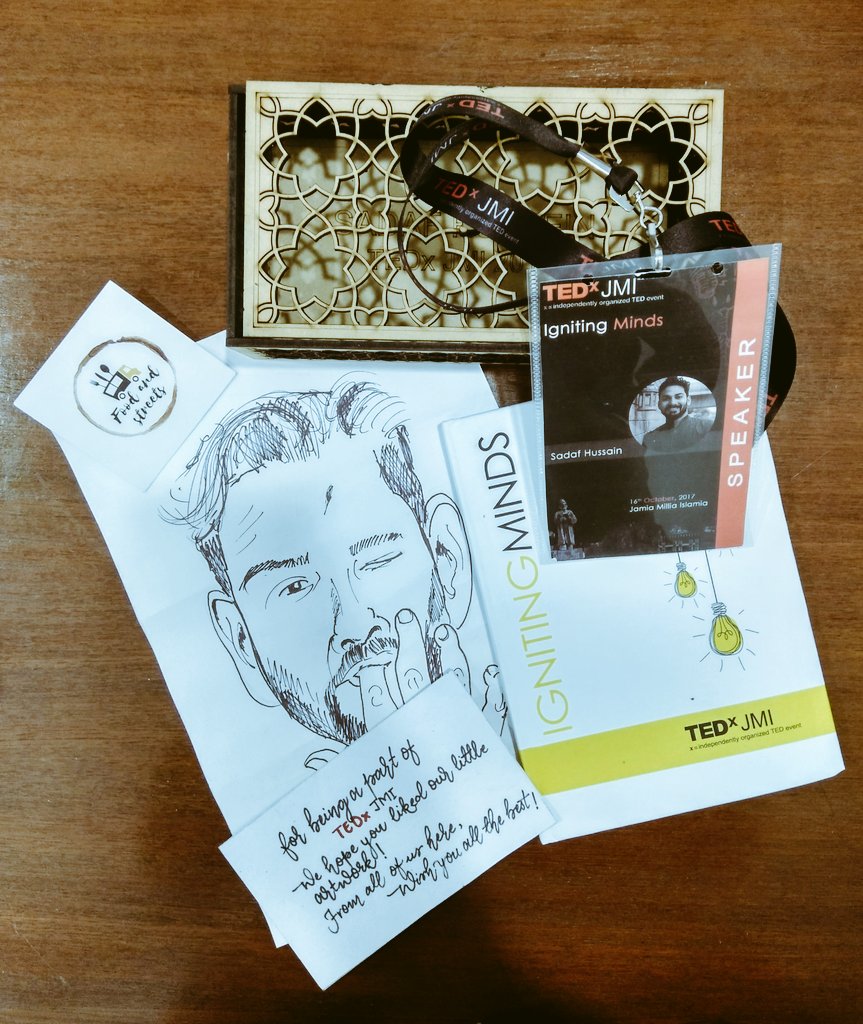 TEDx
JM
TEDx JMI
x = independently organized TED event
TE
TEDx JMI
x = independently organized TED event
Igniting Minds
SPEAKER
Sadaf Hussain
16th October, 2017
Jamia Millia Islamia
Food and
streets
IGNITINGMINDS
TEDx JMI
x = independently organized TED event
for being a part of
TEDx JMI
We hope you liked our little
artwork!
From all of us here,
Wish you all the best!